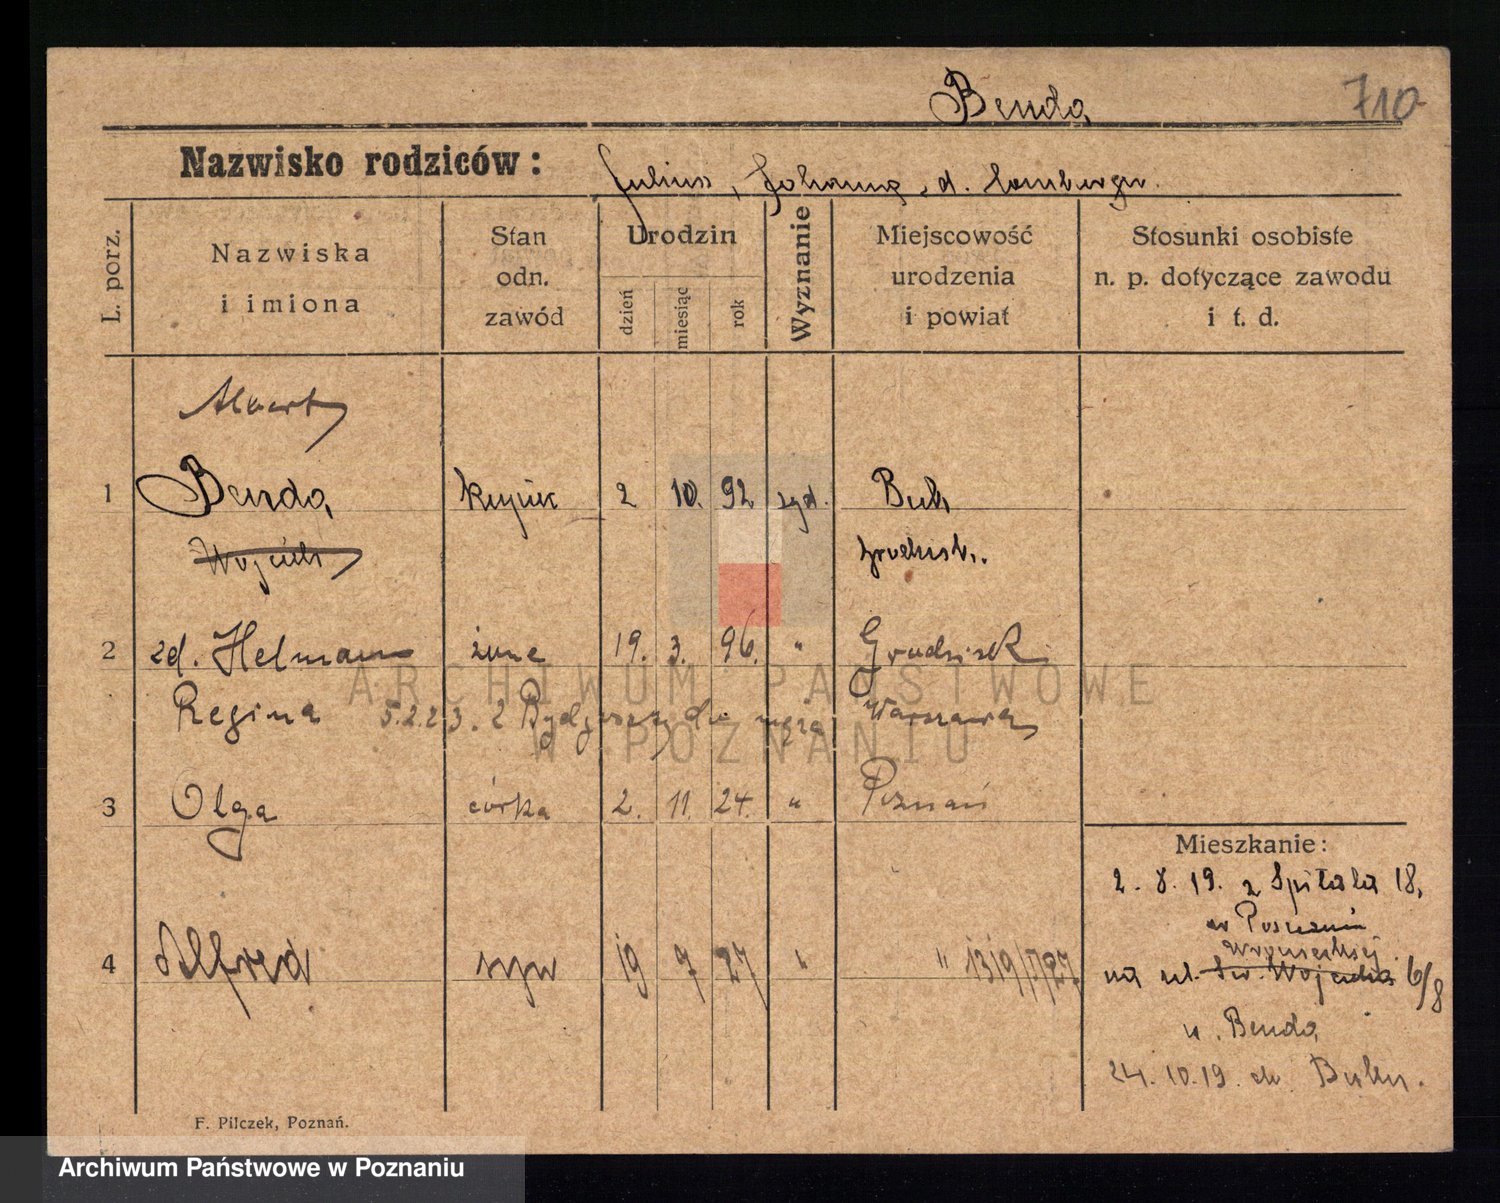 Benda
710
Nazwisko rodziców:
Julius, Johanna, d. Hamburger.
L. porz.
Nazwiska
i imiona
Stan
odn.
zawód
Urodzin
dzień
miesiąc
rok
Wyznanie
Miejscowość
urodzenia
i powiat
Stosunki osobiste
n. p. dotyczące zawodu
i t. d.
Albert
1 Benda kupiec 2 10. 92 żyd. Buk
Wojciech
2 zd. Helman żona 19. 3. 96. " Grodzisk
Regina 5.2.23. z Bydgoszczy do męża Warszawa
3 Olga córka 2. 11. 24. " Poznań
Mieszkanie:
2. 8. 19. z Szpitala 18,
w Poznaniu
4 Alfred syn 19 7 27 " "
na ul. Św. Wojciecha 6/8
u. Benda
24. 10. 19. do Buku.
F. Pilczek, Poznań.
ARCHIWUM PAŃSTWOWE
W POZNANIU
Archiwum Państwowe w Poznaniu